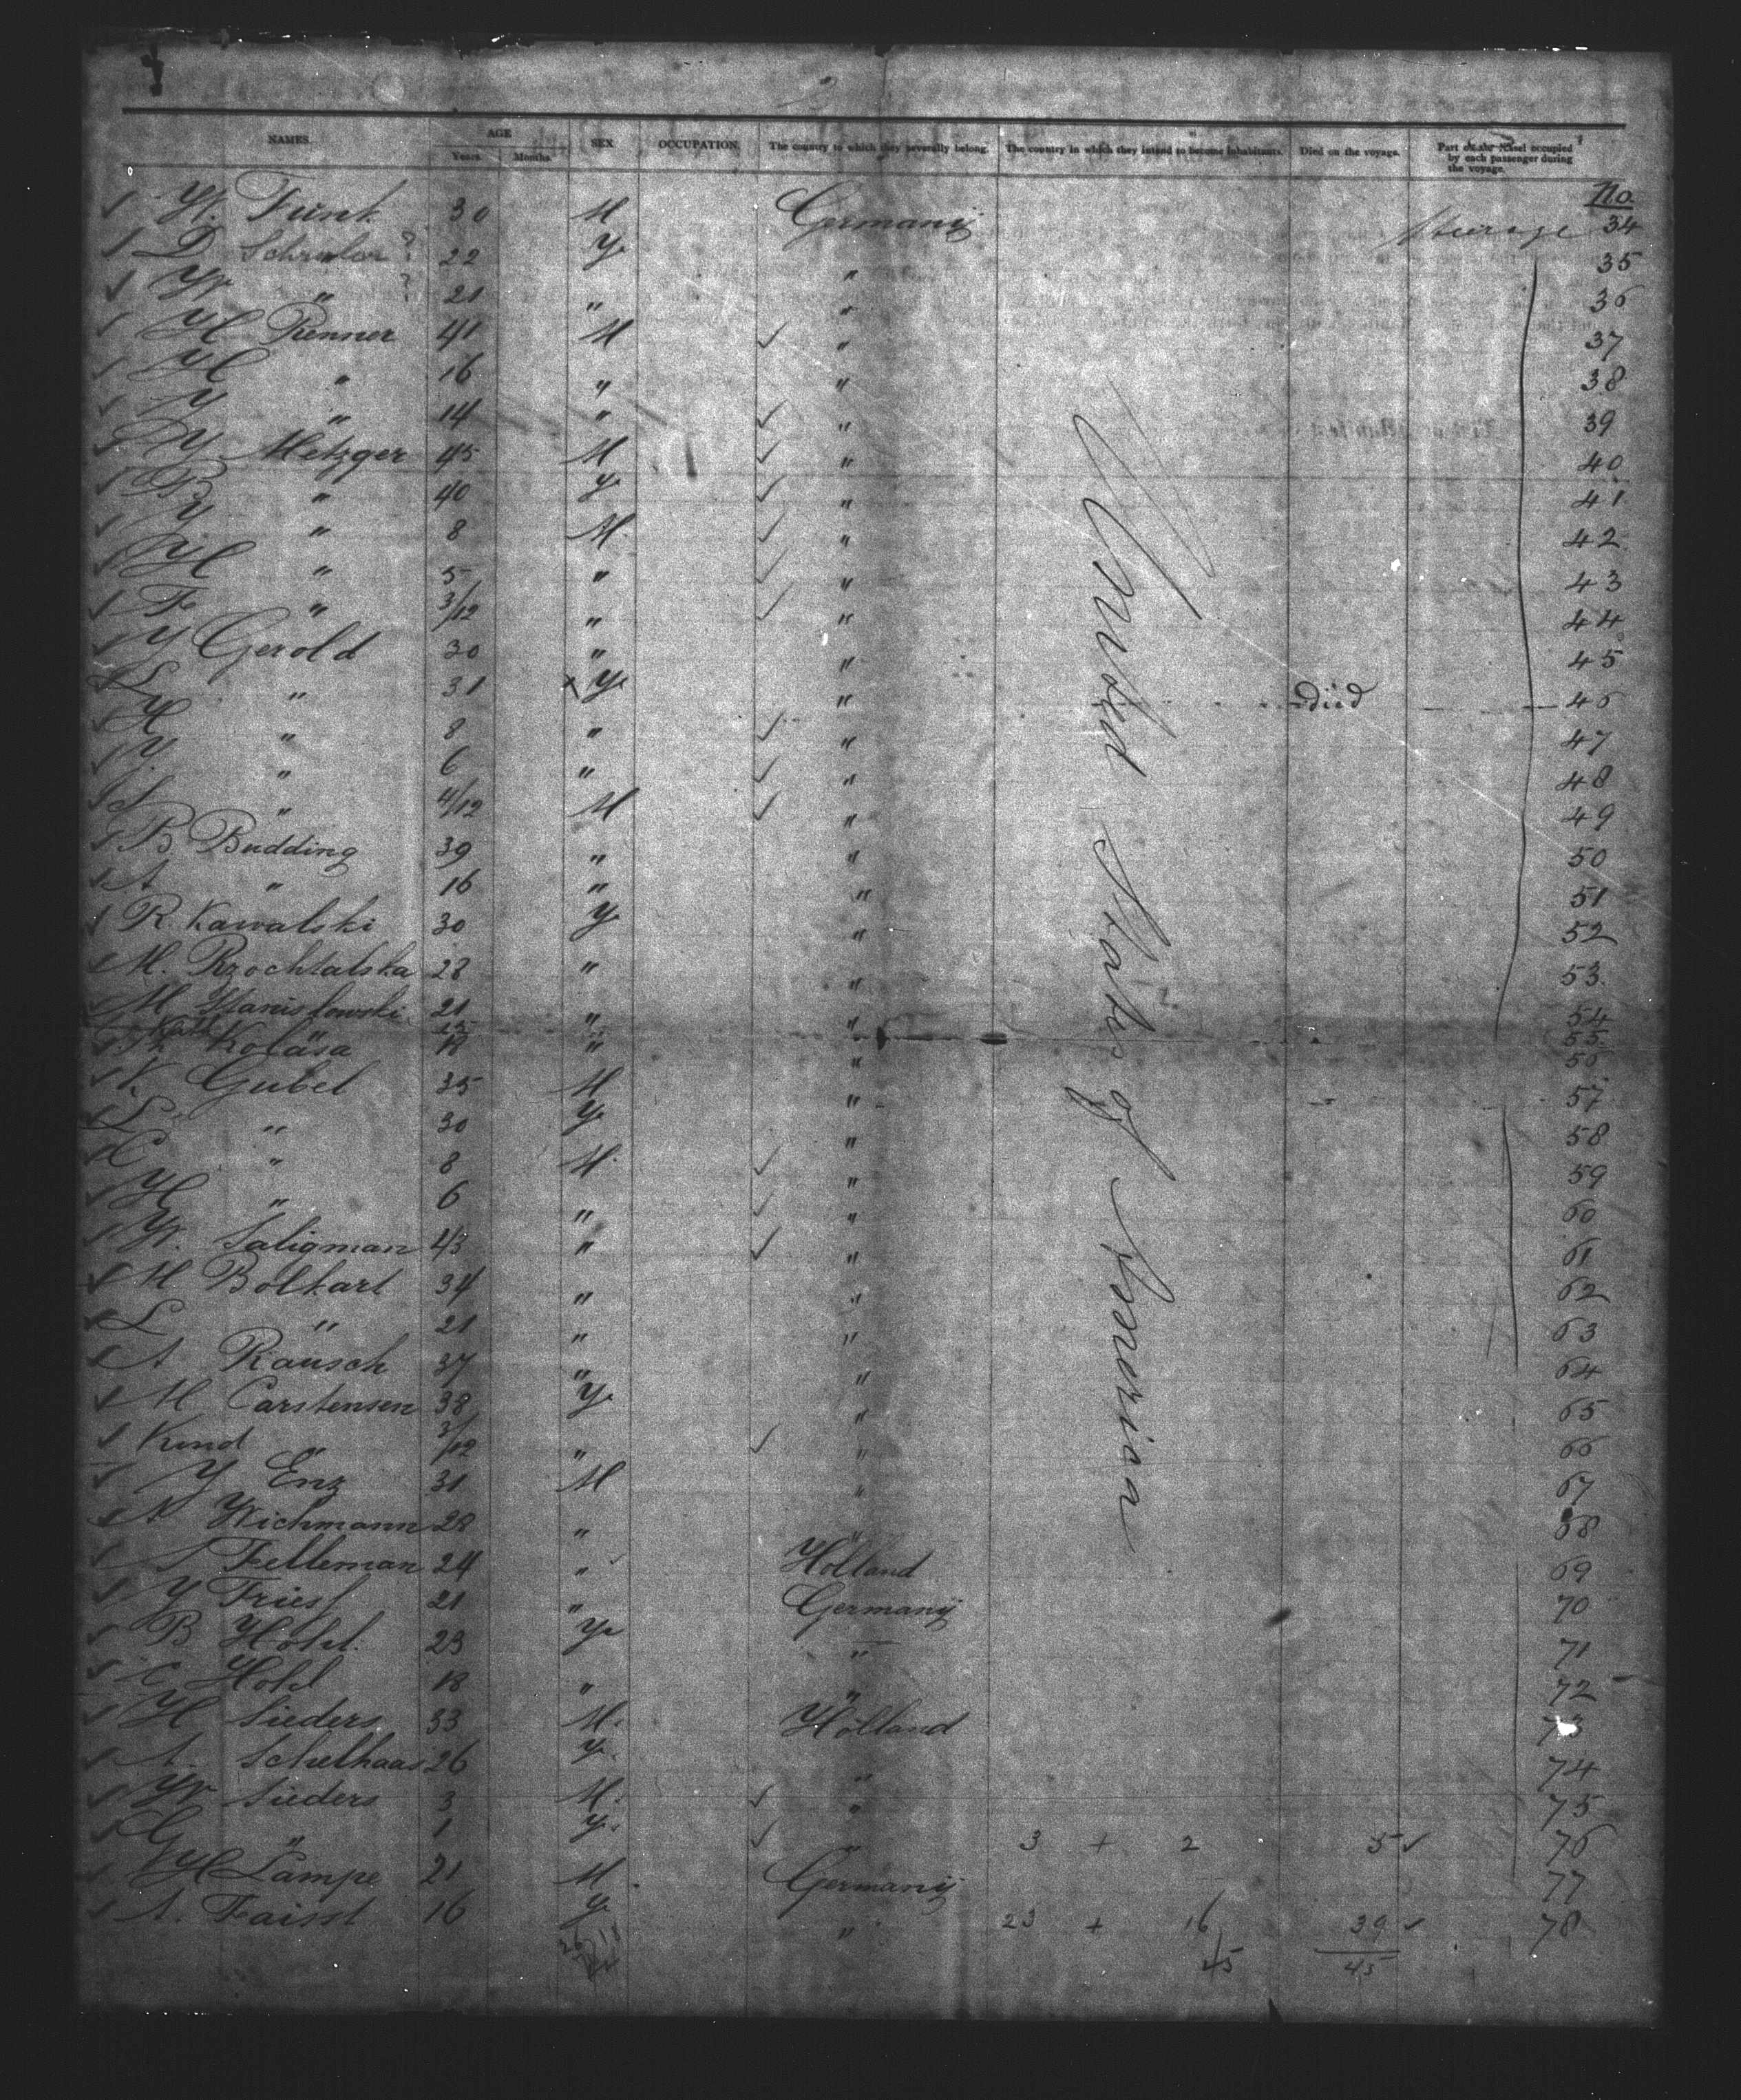 2
NAMES. AGE SEX OCCUPATION. The country to which they severally belong. The country in which they intend to become inhabitants. Died on the voyage. Part of the vessel occupied by each passenger during the voyage.
Years. Months.
No.
W. Funk 30 M Germany Steerage 34
D Schruler? 22 Y " 35
W " ? 21 " " 36
H Renner 41 M " 37
H " 16 " " 38
Y " 14 " " 39
Y Metzger 45 M " 40
B " 40 Y " 41
Y " 8 M " 42
H " 5 " " 43
F " 3/12 " " 44
Y Gerold 30 " " 45
L " 31 x Y " Died 46
H " 8 " " 47
Y " 6 " " 48
S " 4/12 M " 49
B Budding 39 " " 50
A " 16 " " 51
R. Kawalski 30 Y " 52
M. Rzochtalska 28 " " 53
M Stanislowski 21 " " 54
55
Kolasa 18 " " 56
K. Gubel 35 M " 57
L " 30 Y " 58
C " 8 M " 59
H " 6 " " 60
W. Saligman 43 " " 61
H Bolkart 34 " " 62
L " 21 " " 63
A Rausch 37 " " 64
M Carstensen 38 Y " 65
Kind " 3/12 " " 66
Y Enz 31 M " 67
A Wichmann 28 " " 68
A Felleman 24 " Holland 69
Y Friess 21 " Germany 70
B Hohl 23 Y " 71
C Hohl 18 " " 72
H Sieders 33 M. Holland 73
A. Schelhaas 26 Y. " 74
W Sieders 3 M. " 75
G " 1 Y. " 3 + 2 5 76
H Lampe 21 M Germany 77
A. Faisst 16 Y " 23 + 16 39 78
45 45
United States of America